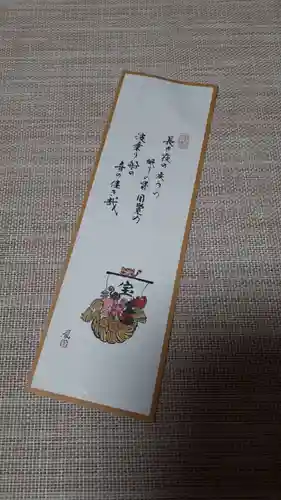 長き夜の遠の
眠りの皆目覚め
波乗り船の
音の佳き哉
宝